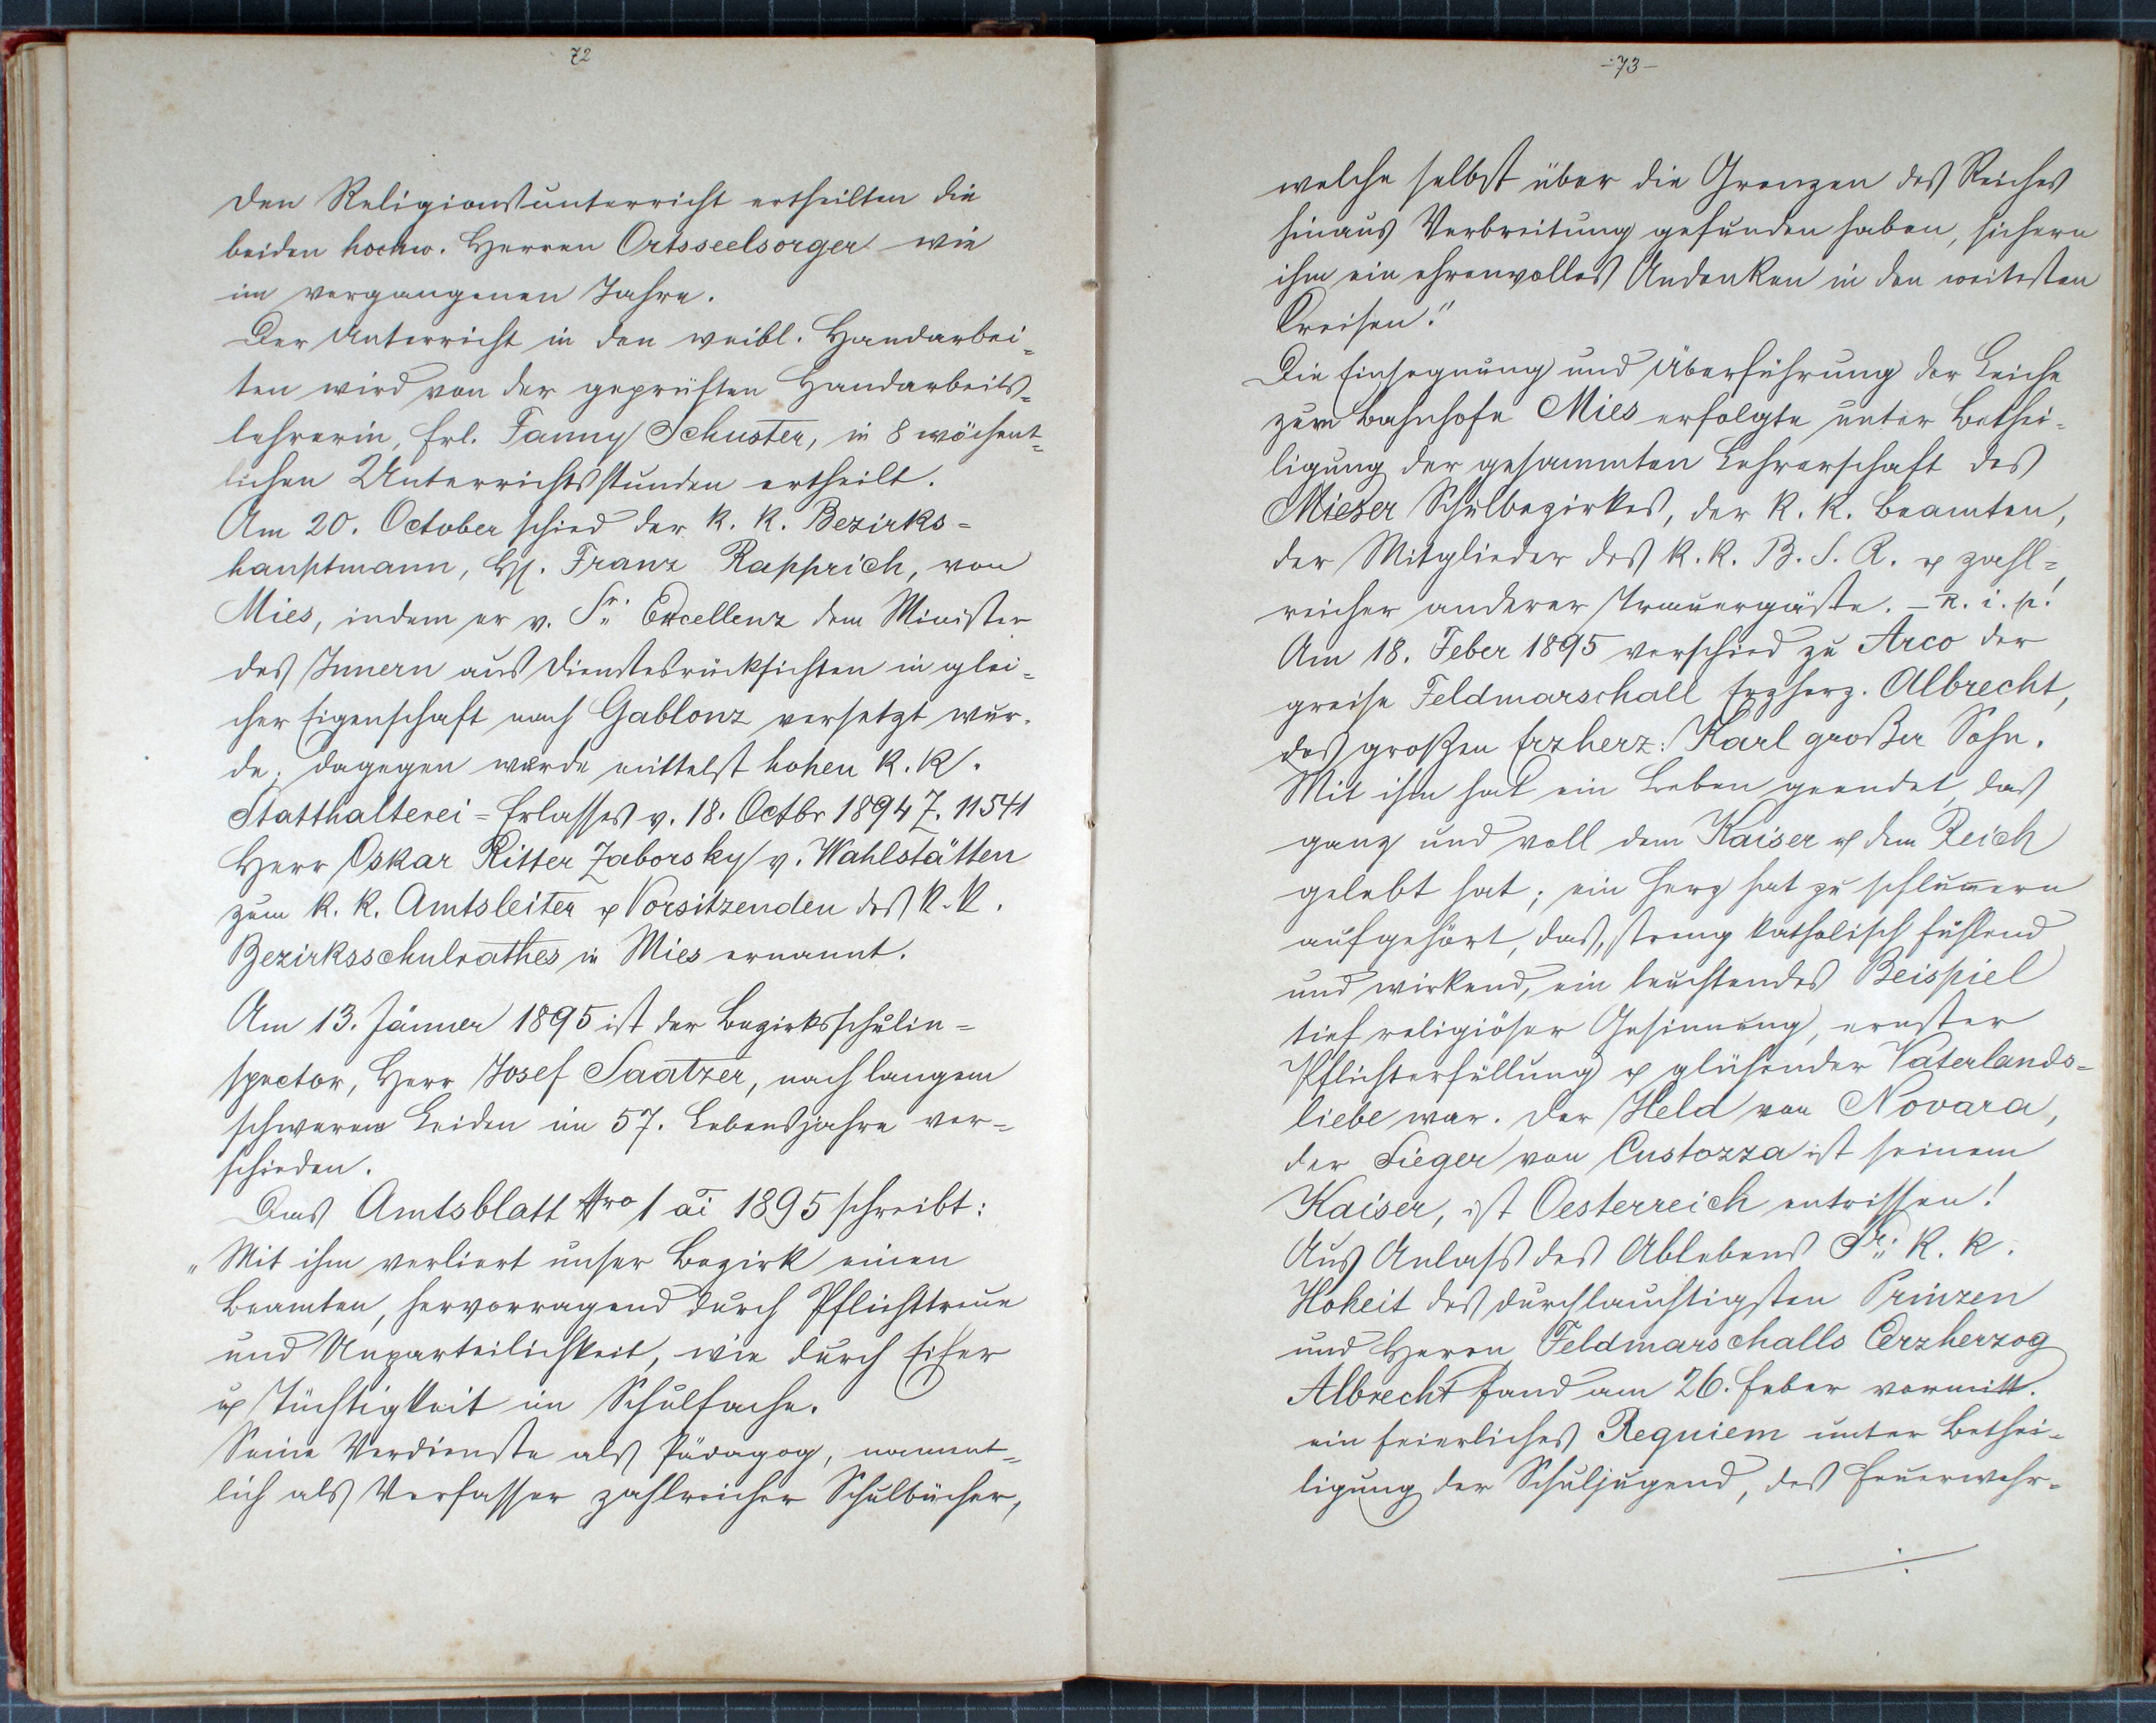 72
Den Religionsunterricht ertheilten die
beiden hochw. Herren Ortsseelsorger wie
im vergangenen Jahre.
Der Unterricht in den weibl. Handarbei=
ten wird von der geprüften Handarbeits=
lehrerin, Frl. Fanny Schuster, in 8 wöchent=
lichen Unterrichtsstunden ertheilt.
Am 20. October schied der k. k. Bezirks=
hauptmann, H. Franz Rapprich, von
Mies, indem er v. Sr. Excellenz dem Minister
des Innern aus Dienstesrücksichten in glei=
cher Eigenschaft nach Gablonz versetzt wur=
de; dagegen wurde mittelst hohen k. k.
Statthalterei=Erlasses v. 18. Octbr 1894 Z. 11541
Herr Oskar Ritter Zaborsky v. Wahlstätten
zum k. k. Amtsleiter u Vorsitzenden des k. k.
Bezirksschulrathes in Mies ernannt.
Am 13. Jänner 1895 ist der Bezirksschulin=
spector, Herr Josef Saatzer, nach langem
schweren Leiden im 57. Lebensjahre ver=
schieden.
Das Amtsblatt Nro 1 ai 1895 schreibt:
"Mit ihm verliert unser Bezirk einen
Beamten, hervorragend durch Pflichttreue
und Unparteilichkeit, wie durch Eifer
u Tüchtigkeit im Schulfache.
Seine Verdienste als Pädagog, nament=
lich als Verfasser zahlreicher Schulbücher,
-73-
welche selbst über die Grenzen des Reiches
hinaus Verbreitung gefunden haben, sichern
ihm ein ehrenvolles Andenken in den weitesten
Kreisen."
Die Einsegnung und Überführung der Leiche
zum Bahnhofe Mies erfolgte unter Bethei=
ligung der gesammten Lehrerschaft des
Mieser Schulbezirkes, der k. k. Beamten,
der Mitglieder des k. k. B. S. R. u zahl=
reicher anderer Trauergäste. – R. i. p.!
Am 18. Feber 1895 verschied zu Arco der
greise Feldmarschall Erzherz. Albrecht,
des großen Erzherz: Karl großer Sohn.
Mit ihm hat ein Leben geendet, das
ganz und voll dem Kaiser u dem Reich
gelebt hat; ein Herz hat zu schlummern
aufgehört, das, streng katholisch fühlend
und wirkend, ein leuchtendes Beispiel
tief religiöser Gesinnung, ernster
Pflichterfüllung u glühender Vaterlands=
liebe war. Der Held von Novara,
der Sieger von Custozza ist seinem
Kaiser, ist Oesterreich entrissen!
Aus Anlass des Ablebens Sr. k. k.
Hoheit des durchlauchtigsten Prinzen
und Herrn Feldmarschalls Erzherzog
Albrecht fand am 26. Feber vormitt.
ein feierliches Requiem unter Bethei=
ligung der Schuljugend, des Feuerwehr=